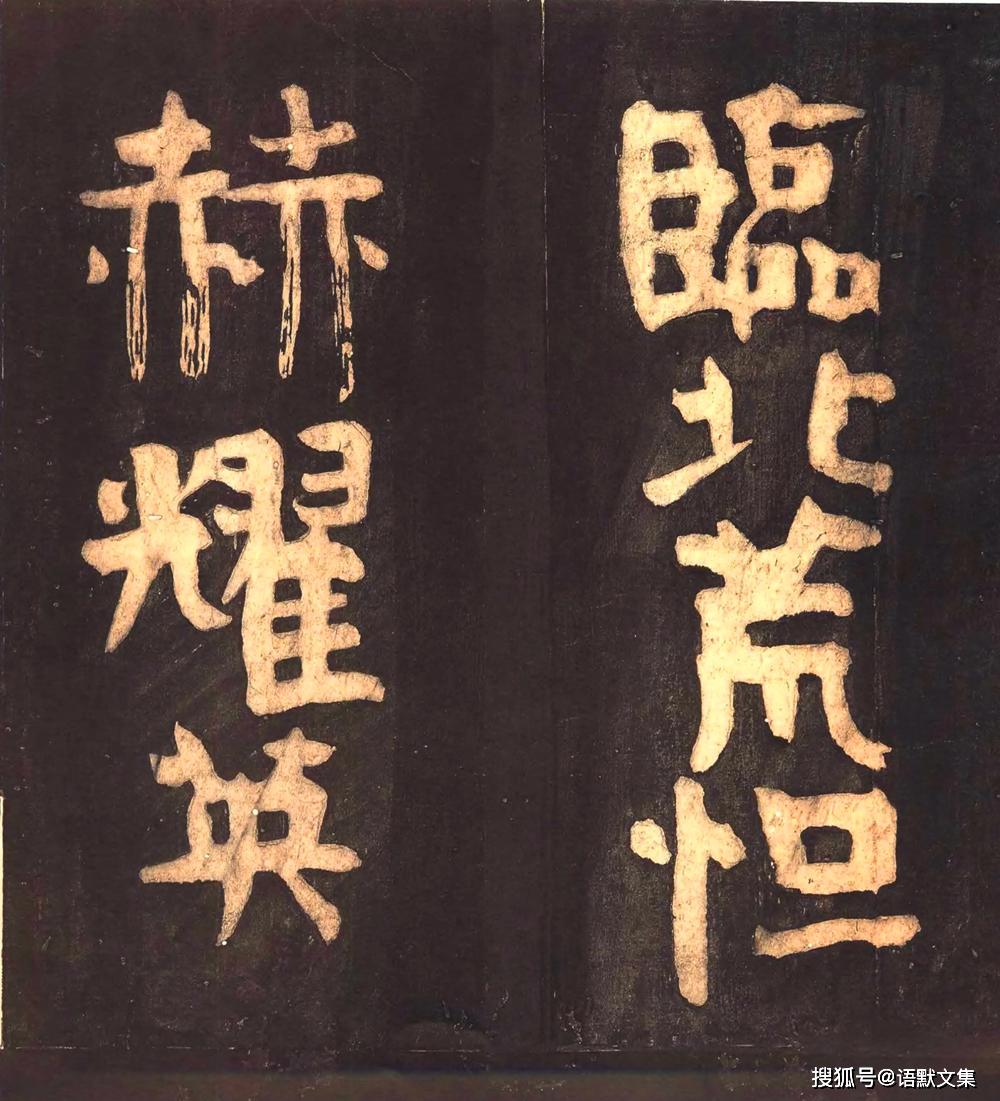 臨北荒怛
赫耀英
搜狐号@语默文集